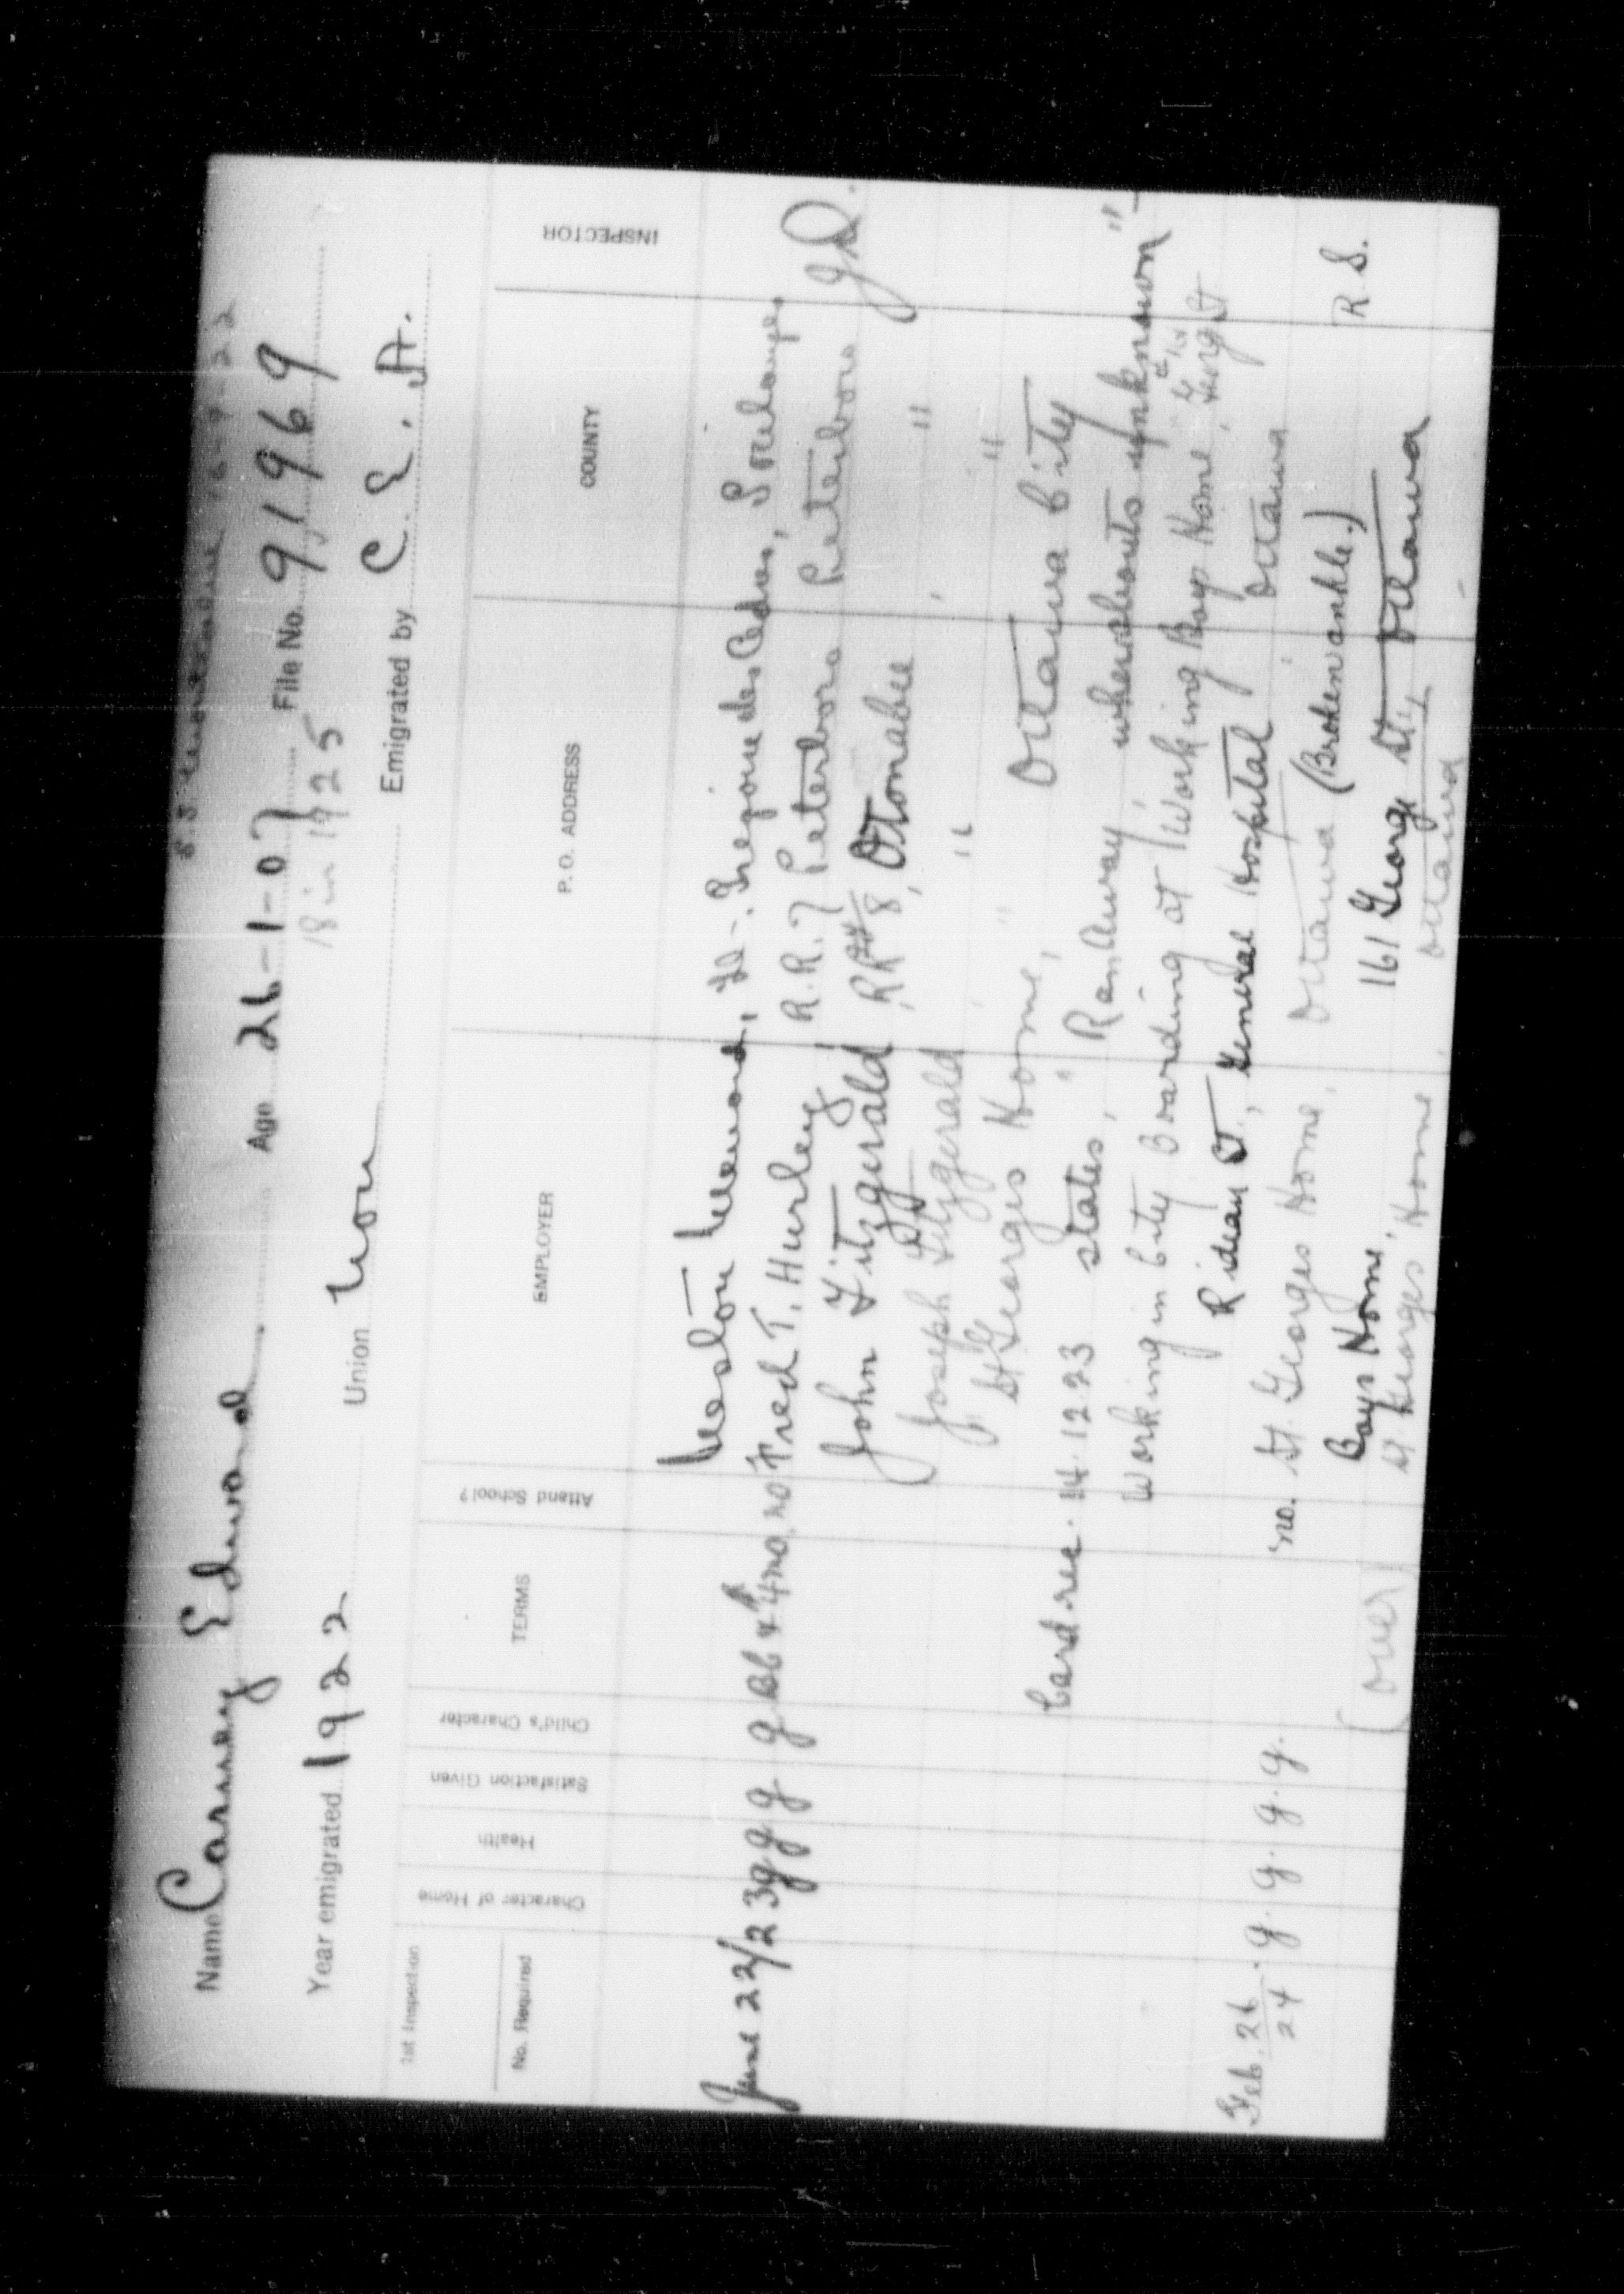 S.S. 16-9-22
Name Carney Edward Age 26-1-07 File No. 91969
18 in 1925
Year emigrated 1922 Union non Emigrated by C.E.A.
1st Inspection
No. Required
Character of Home Health Satisfaction Given Child's Character TERMS Attend School? EMPLOYER P. O. ADDRESS COUNTY INSPECTOR
des Cedres, Soulanges
June 22/23 g g g g no Fred T. Hurley R.R.7 Peterboro Peterboro
John Fitzgerald, RR#8, Otonabee "
Joseph Fitzgerald " "
St Georges Home, Ottawa City
Card rec. 14.12.23 states, "Ran Away, whereabouts unknown"
Working in City Boarding at Working Boys Home, George St
Rideau St, General Hospital Ottawa
Feb. 26/24 g. g. g. g. no. St. Georges Home, Ottawa (Broken ankle.) R.S.
Boys Home, 161 George St, Ottawa
(over) St Georges Home, Ottawa